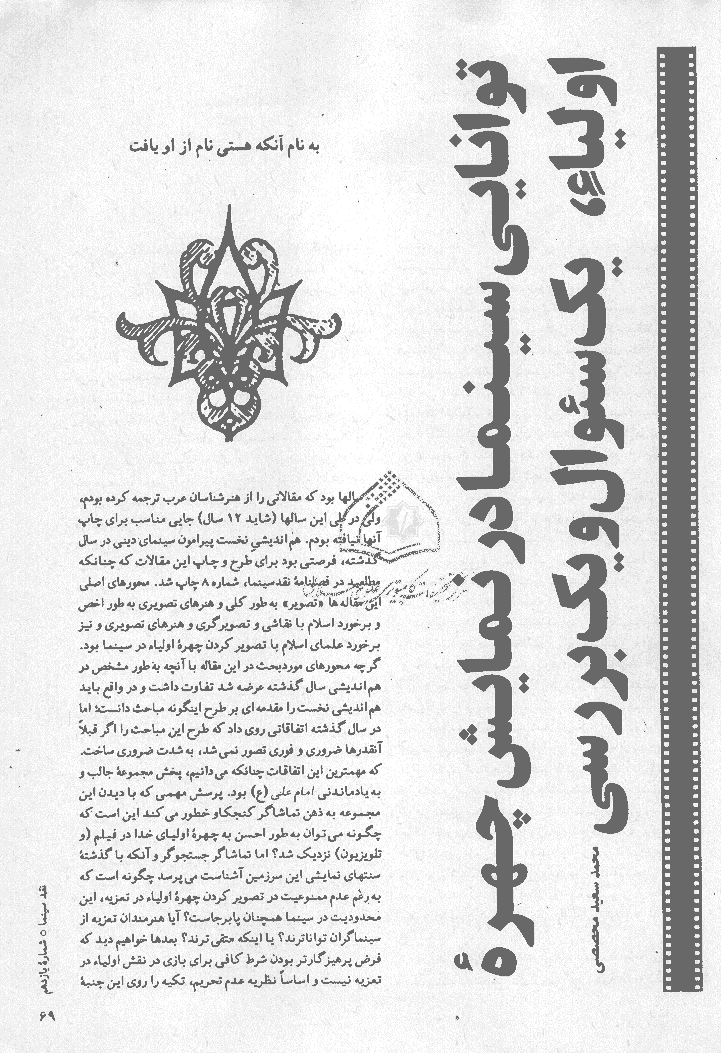 توانایی سینما در نمایش چهرهٔ
اولیاء، یک سئوال و یک بررسی
محمد سعید محصصی
به نام آنکه هستی نام از او یافت
سالها بود که مقالاتی را از هنرشناسان عرب ترجمه کرده بودم،
ولی در طی این سالها (شاید ۱۲ سال) جایی مناسب برای چاپ
آنها نیافته بودم. هم‌اندیشی نخست پیرامون سینمای دینی در سال
گذشته، فرصتی بود برای طرح و چاپ این مقالات که چنانکه
مطلعید در فصلنامهٔ نقدسینما، شماره ۸ چاپ شد. محورهای اصلی
این مقاله‌ها «تصویر» به‌طور کلی و هنرهای تصویری به طور اخص
و برخورد اسلام با نقاشی و تصویرگری و هنرهای تصویری و نیز
برخورد علمای اسلام با تصویر کردن چهرهٔ اولیاء در سینما بود.
گرچه محورهای موردبحث در این مقاله با آنچه به‌طور مشخص در
هم‌اندیشی سال گذشته عرضه شد تفاوت داشت و در واقع باید
هم‌اندیشی نخست را مقدمه‌ای بر طرح اینگونه مباحث دانست؛ اما
در سال گذشته اتفاقاتی روی داد که طرح این مباحث را اگر قبلاً
آنقدرها ضروری و فوری تصور نمی‌شد، به‌شدت ضروری ساخت.
که مهمترین این اتفاقات چنانکه می‌دانیم، پخش مجموعهٔ جالب و
به‌یادماندنی امام علی (ع) بود. پرسش مهمی که با دیدن این
مجموعه به ذهن تماشاگر کنجکاو خطور می‌کند این است که
چگونه می‌توان به‌طور احسن به چهرهٔ اولیای خدا در فیلم (و
تلویزیون) نزدیک شد؟ اما تماشاگر جستجوگر و آنکه با گذشتهٔ
سنتهای نمایشی این سرزمین آشناست می‌پرسد چگونه است که
به‌رغم عدم ممنوعیت در تصویر کردن چهرهٔ اولیاء در تعزیه، این
محدودیت در سینما همچنان پابرجاست؟ آیا هنرمندان تعزیه از
سینماگران تواناترند؟ یا اینکه متقی‌ترند؟ بعدها خواهیم دید که
فرض پرهیزگارتر بودن شرط کافی برای بازی در نقش اولیاء در
تعزیه نیست و اساساً نظریه عدم تحریم، تکیه را روی این جنبهٔ
نقد سینما ○ شمارهٔ یازدهم
۶۹